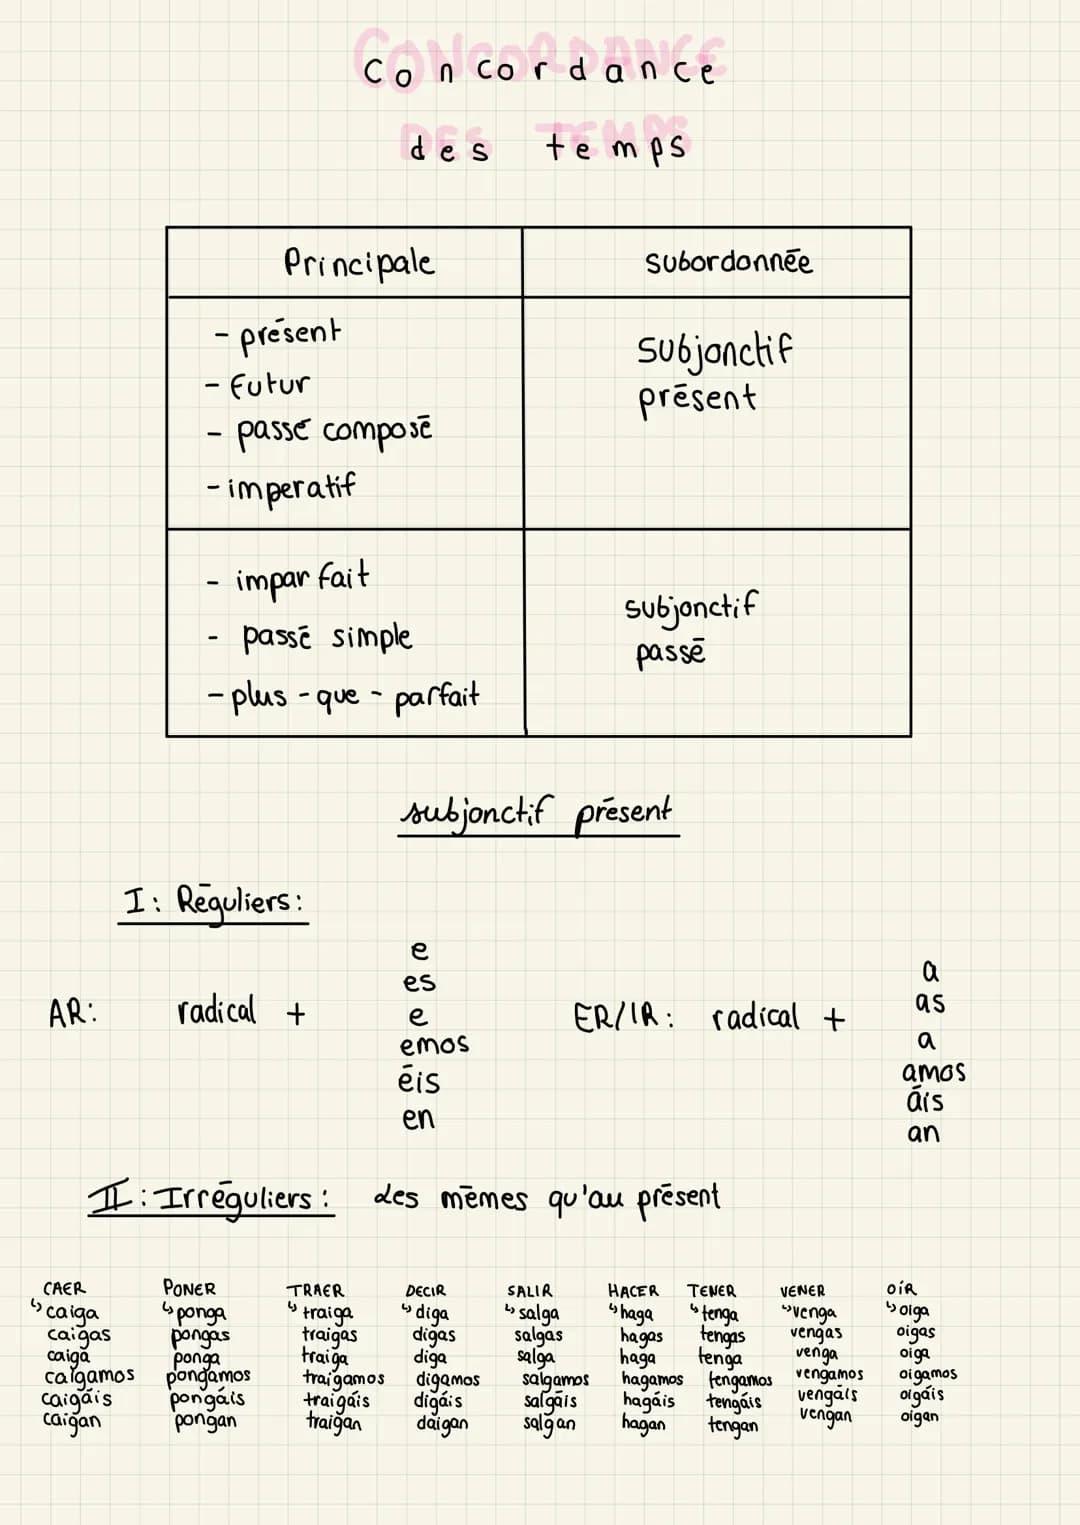 Concordance
des temps
Principale
subordonnée
- présent
- futur
- passé composé
- imperatif
subjonctif
présent
- impar fait
- passé simple
- plus-que-parfait
subjonctif
passé
subjonctif présent
I: Réguliers:
AR: radical +
e
es
e
emos
éis
en
ER/IR: radical +
a
as
a
amos
áis
an
II: Irréguliers: des mêmes qu'au présent
CAER
↳ caiga
caigas
caiga
caigamos
caigáis
caigan
PONER
↳ ponga
pongas
ponga
pongamos
pongáis
pongan
TRAER
↳ traiga
traigas
traiga
traigamos
traigáis
traigan
DECIR
↳ diga
digas
diga
digamos
digáis
daigan
SALIR
↳ salga
salgas
salga
salgamos
salgáis
salgan
HACER
↳ haga
hagas
haga
hagamos
hagáis
hagan
TENER
↳ tenga
tengas
tenga
tengamos
tengáis
tengan
VENER
↳ venga
vengas
venga
vengamos
vengáis
vengan
OÍR
↳ oiga
oigas
oiga
oigamos
oigáis
oigan